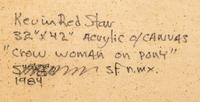 Kevin Red Star
32" x 42" Acrylic o/CANVAS
"Crow Woman on Pony"
SF n.mx.
1984